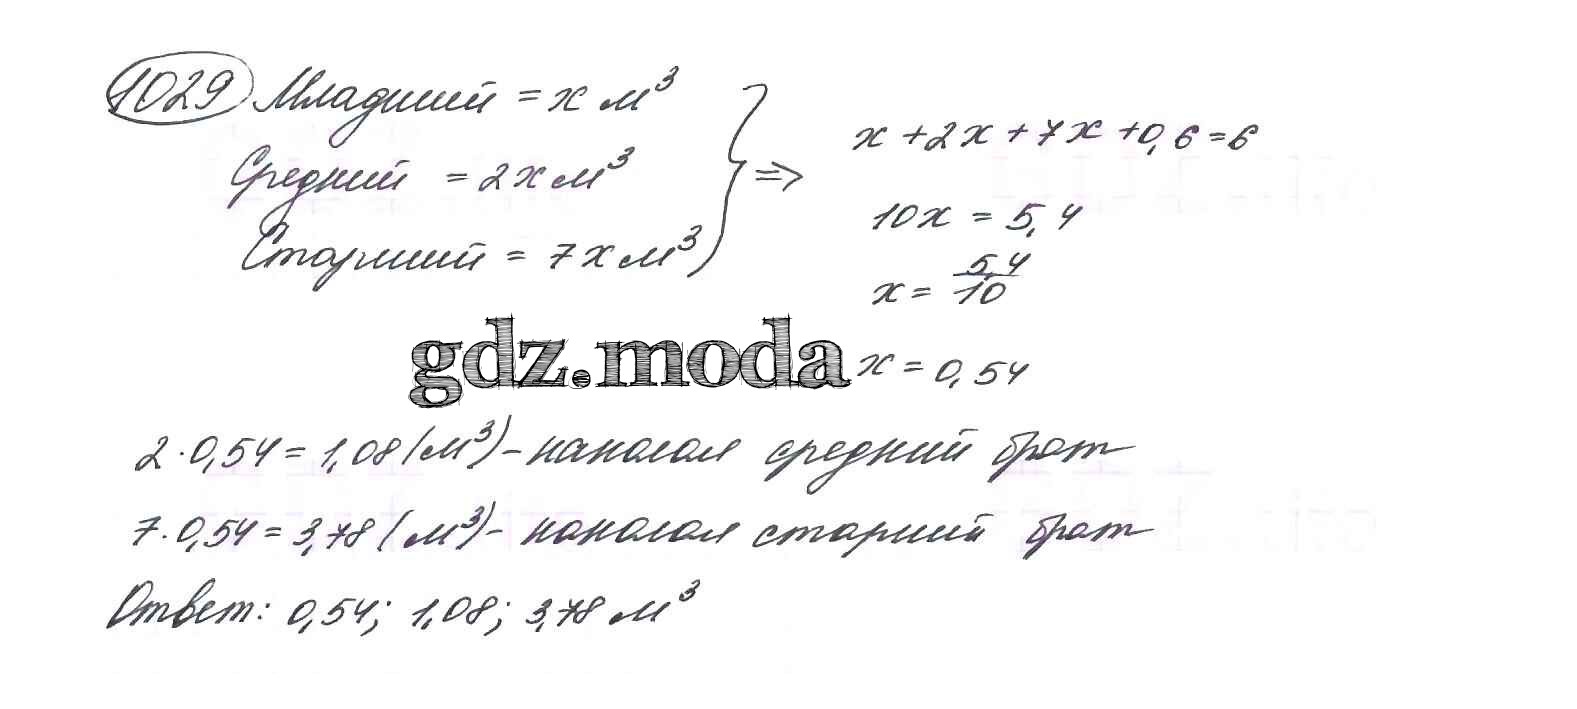 1029 Младший = x м³
Средний = 2x м³
Старший = 7x м³
} ⇒
x + 2x + 7x + 0,6 = 6
10x = 5,4
x = 5,4/10
x = 0,54
gdz.moda
2 · 0,54 = 1,08 (м³) - наколол средний брат
7 · 0,54 = 3,78 (м³) - наколол старший брат
Ответ: 0,54; 1,08; 3,78 м³